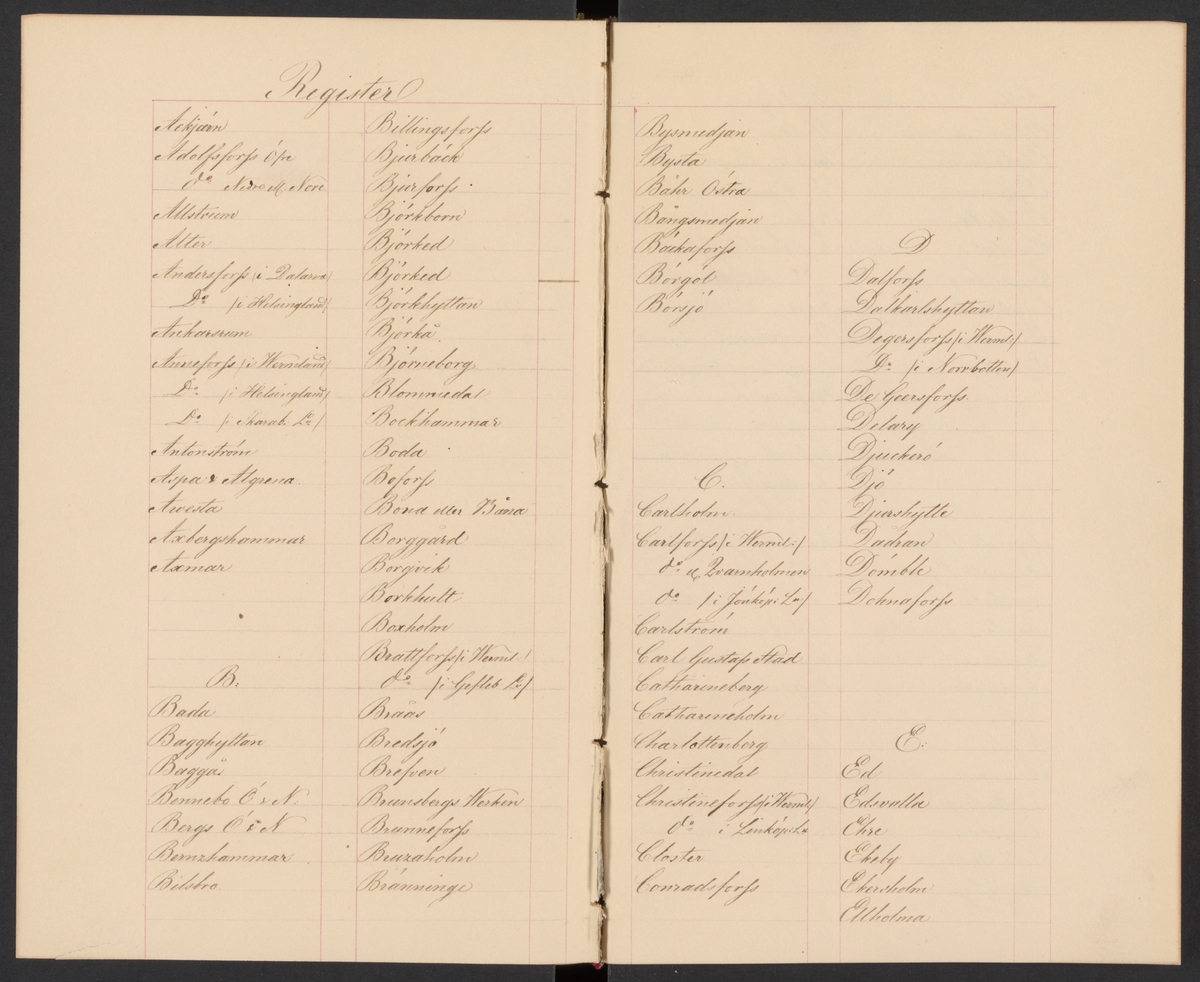 Register
Ackjärn
Adolfsforss Öfre
do Nedre M. Nore
Allström
Alter
Andersforss /i Dalarna/
Do /i Helsingland/
Ankarsrum
Anneforss /i Wermland/
Do /i Helsingland/
Do /i Skarab. Ln/
Antonström
Aspa & Algrena
Avesta
Axbergshammar
Axmar
B.
Bada
Bagghyttan
Baggå
Bennebo Ö & N.
Bergs Ö & N
Bernzhammar
Bilsbro
Billingsforss
Bjurbäck
Bjurforss
Björkborn
Björked
Björked
Björkhyttan
Björkå
Björneborg
Blommedal
Bockhammar
Boda
Boforss
Bona eller Båna
Borggård
Borgvik
Borkhult
Boxholm
Brattforss /i Werml./
do /i Gefleb. Ln/
Braås
Bredsjö
Brefven
Brunsbergs Werken
Brunneforss
Bruzaholm
Bränninge
Bysmedjan
Bysta
Båhr Östra
Bångsmedjan
Bäckaforss
Börgöl
Börsjö
C.
Carlholm
Carlforss /i Werml:/
do el. Qvarnholmen
do /i Jönköp: Ln/
Carlström
Carl Gustafs Stad
Cathrineberg
Catharineholm
Charlottenberg
Christinedal
Christineforss /i Werml:/
do i Linköp: Ln
Closter
Conradsforss
D
Dalforss
Dalkarlshyttan
Degersforss /i Werml:/
Do /i Norrbotten/
De Geersforss
Delary
Djuckerö
Djö
Djurshytte
Dådran
Dömble
Dohnaforss
E.
Ed
Edsvalla
Ehre
Ekeby
Ekersholm
Ellholma